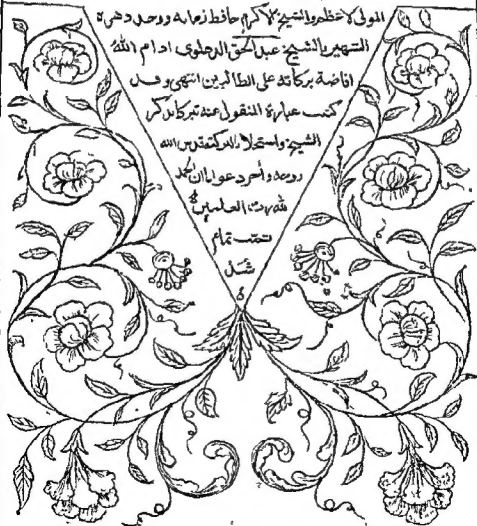 المولى الاعظم والشيخ الاكرم حافظ زمانه ووحيد دهره
الشهير بالشيخ عبد الحق الدهلوى ادام الله
افاضة بركاته على الطالبين انتهى وقد
كتبت عبارة المنقول عنه تبركا بذكر
الشيخ قدس الله
روحه وأخر دعوانا ان الحمد
لله رب العلمين
تمت تمام
شد